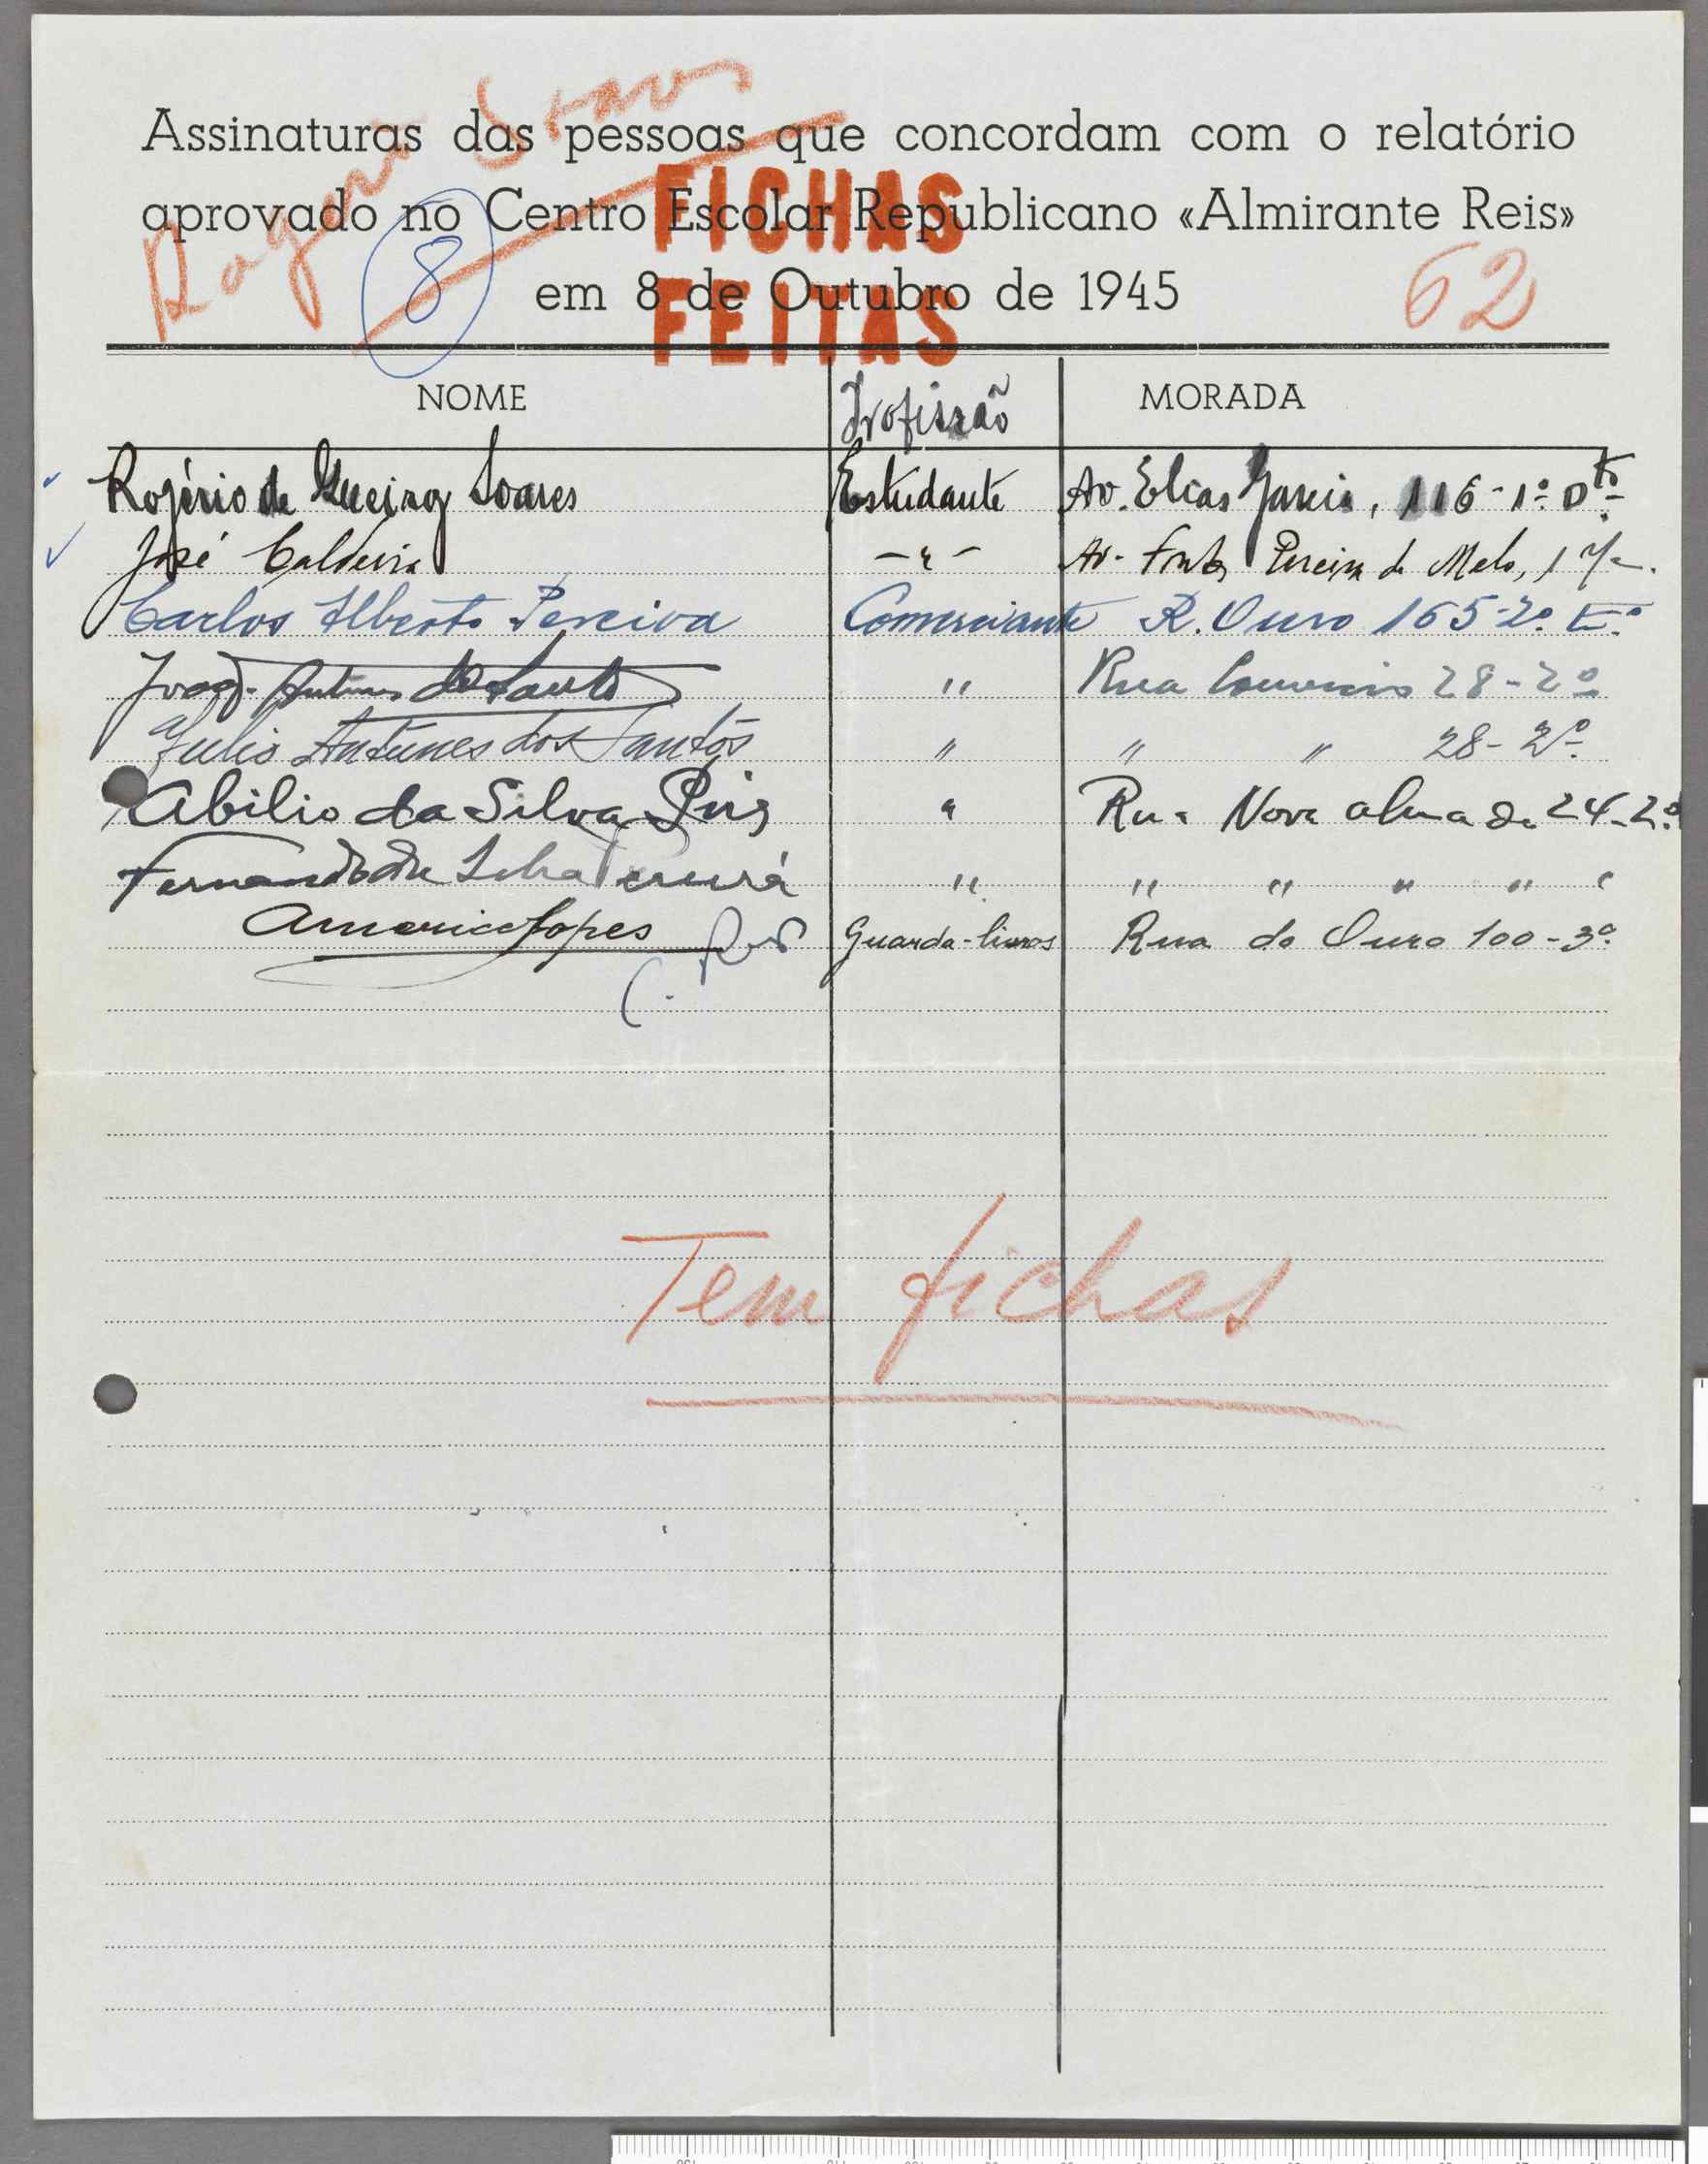 Assinaturas das pessoas que concordam com o relatório
aprovado no Centro Escolar Republicano «Almirante Reis»
em 8 de Outubro de 1945
Soares
FICHAS
FEITAS
8
62
NOME Profissão MORADA
Rogério de Soares Estudante Av. Elias Garcia, 116-1º Dto
José Caldeira - " - Av. Fontes Pereira de Melo, 17
Carlos Alberto Pereira Comerciante R. Ouro 165-2º E.º
Antunes dos Santos " Rua 28-2º
Julio Antunes dos Santos " " " 28-2º
Abilio da Silva " Rua Nova almada 24-2º
Fernando da Silva " " " " " "
Americo Lopes Guarda-livros Rua do Ouro 100-3º
Tem fichas